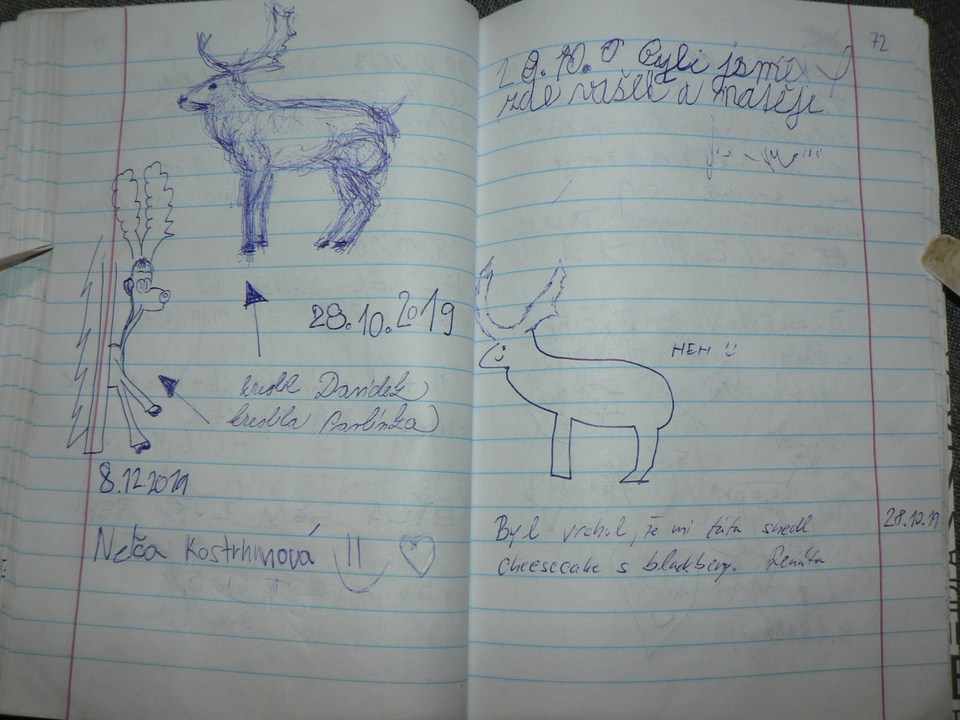 28.10.2019
kreslil Davídek
kreslila Pavlínka
8.12.2019
Netča Kostrhunová
72
Byli jsme
zde Vašek a Matěj.
HEH
28.10.19
Byl vrchol, že mi táta snědl
cheesecake s blackberry. Renáta